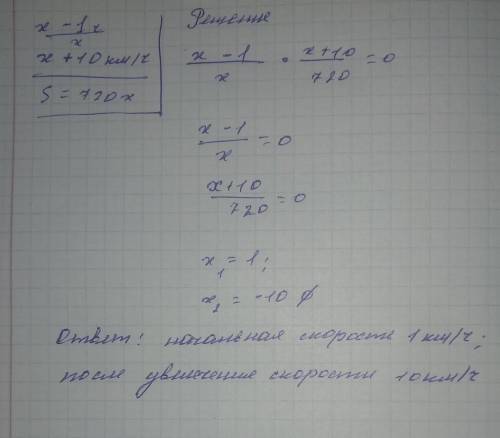 x - 1ч
x
x + 10 км/ч
S = 720 x
Решение
x - 1 / x • x + 10 / 720 = 0
x - 1 / x = 0
x + 10 / 720 = 0
x₁ = 1;
x₂ = -10 ∅
Ответ: начальная скорость 1 км/ч;
после увеличения скорости 10 км/ч